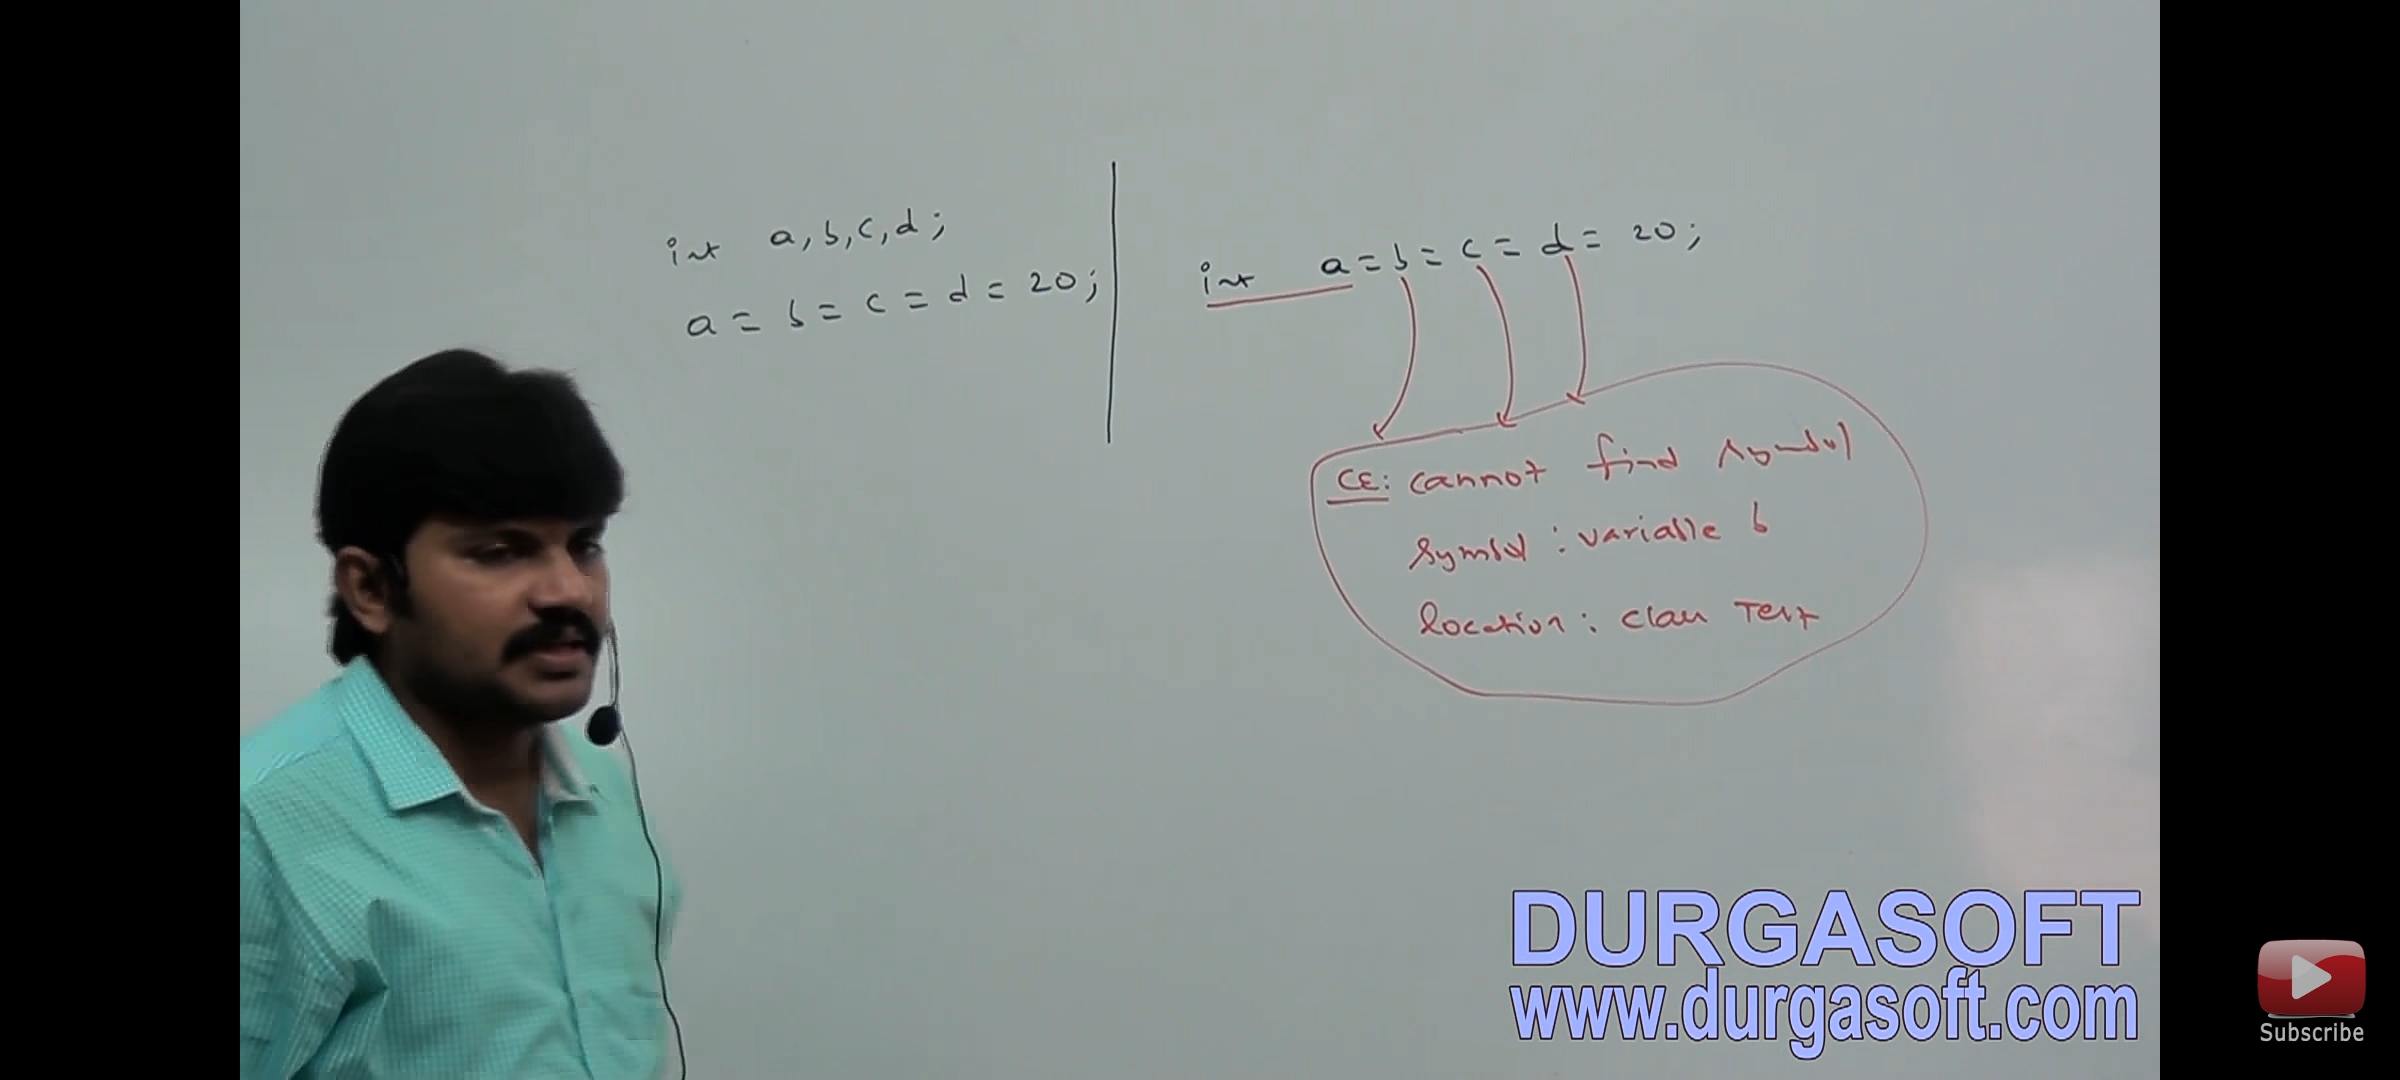 int a, b, c, d;
a = b = c = d = 20;
int a = b = c = d = 20;
CE: cannot find symbol
symbol : variable b
location : class Test
DURGASOFT
www.durgasoft.com
Subscribe